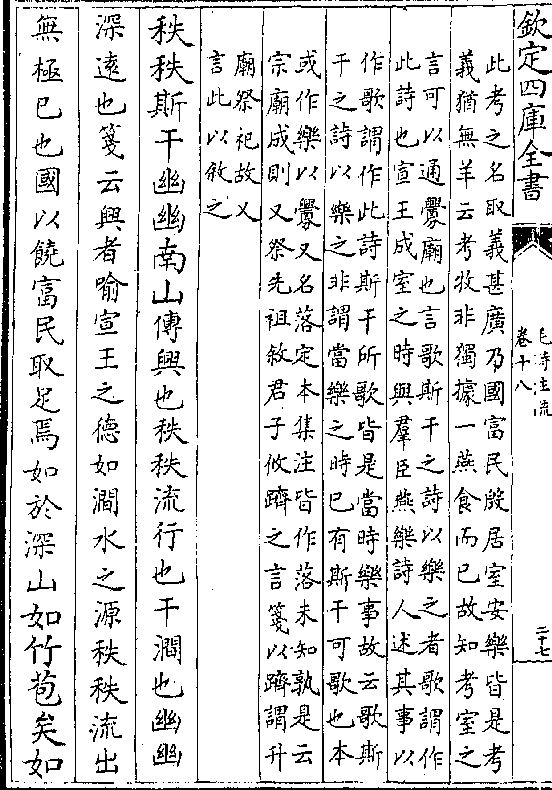 欽定四庫全書
毛詩注疏
卷十八
二十七
此考之名取義甚廣乃國富民殷居室安樂皆是考
義猶無羊云考牧非獨據一燕食而已故知考室之
言可以通釁廟也言歌斯干之詩以樂之者歌謂作
此詩也宣王成室之時與羣臣燕樂詩人述其事以
作歌謂作此詩斯干所歌皆是當時樂事故云歌斯
干之詩以樂之非謂當樂之時已有斯干可歌也本
或作樂以釁又名落定本集注皆作落未知孰是云
宗廟成則又祭先祖敘君子攸躋之言箋以躋謂升
廟祭祀故又
言此以敘之
秩秩斯干幽幽南山傳興也秩秩流行也干澗也幽幽
深遠也箋云興者喻宣王之德如澗水之源秩秩流出
無極已也國以饒富民取足焉如於深山如竹苞矣如